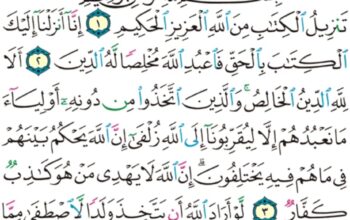 تَنزِيلُ ٱلْكِتَٰبِ مِنَ ٱللَّهِ ٱلْعَزِيزِ ٱلْحَكِيمِ ١ إِنَّآ أَنزَلْنَآ إِلَيْكَ
ٱلْكِتَٰبَ بِٱلْحَقِّ فَٱعْبُدِ ٱللَّهَ مُخْلِصًا لَّهُ ٱلدِّينَ ٢ أَلَا
لِلَّهِ ٱلدِّينُ ٱلْخَالِصُ ۚ وَٱلَّذِينَ ٱتَّخَذُوا۟ مِن دُونِهِۦٓ أَوْلِيَآءَ
مَا نَعْبُدُهُمْ إِلَّا لِيُقَرِّبُونَآ إِلَى ٱللَّهِ زُلْفَىٰٓ إِنَّ ٱللَّهَ يَحْكُمُ بَيْنَهُمْ
فِى مَا هُمْ فِيهِ يَخْتَلِفُونَ ۗ إِنَّ ٱللَّهَ لَا يَهْدِى مَنْ هُوَ كَٰذِبٌ
كَفَّارٌ ٣ لَّوْ أَرَادَ ٱللَّهُ أَن يَتَّخِذَ وَلَدًا لَّٱصْطَفَىٰ مِمَّا